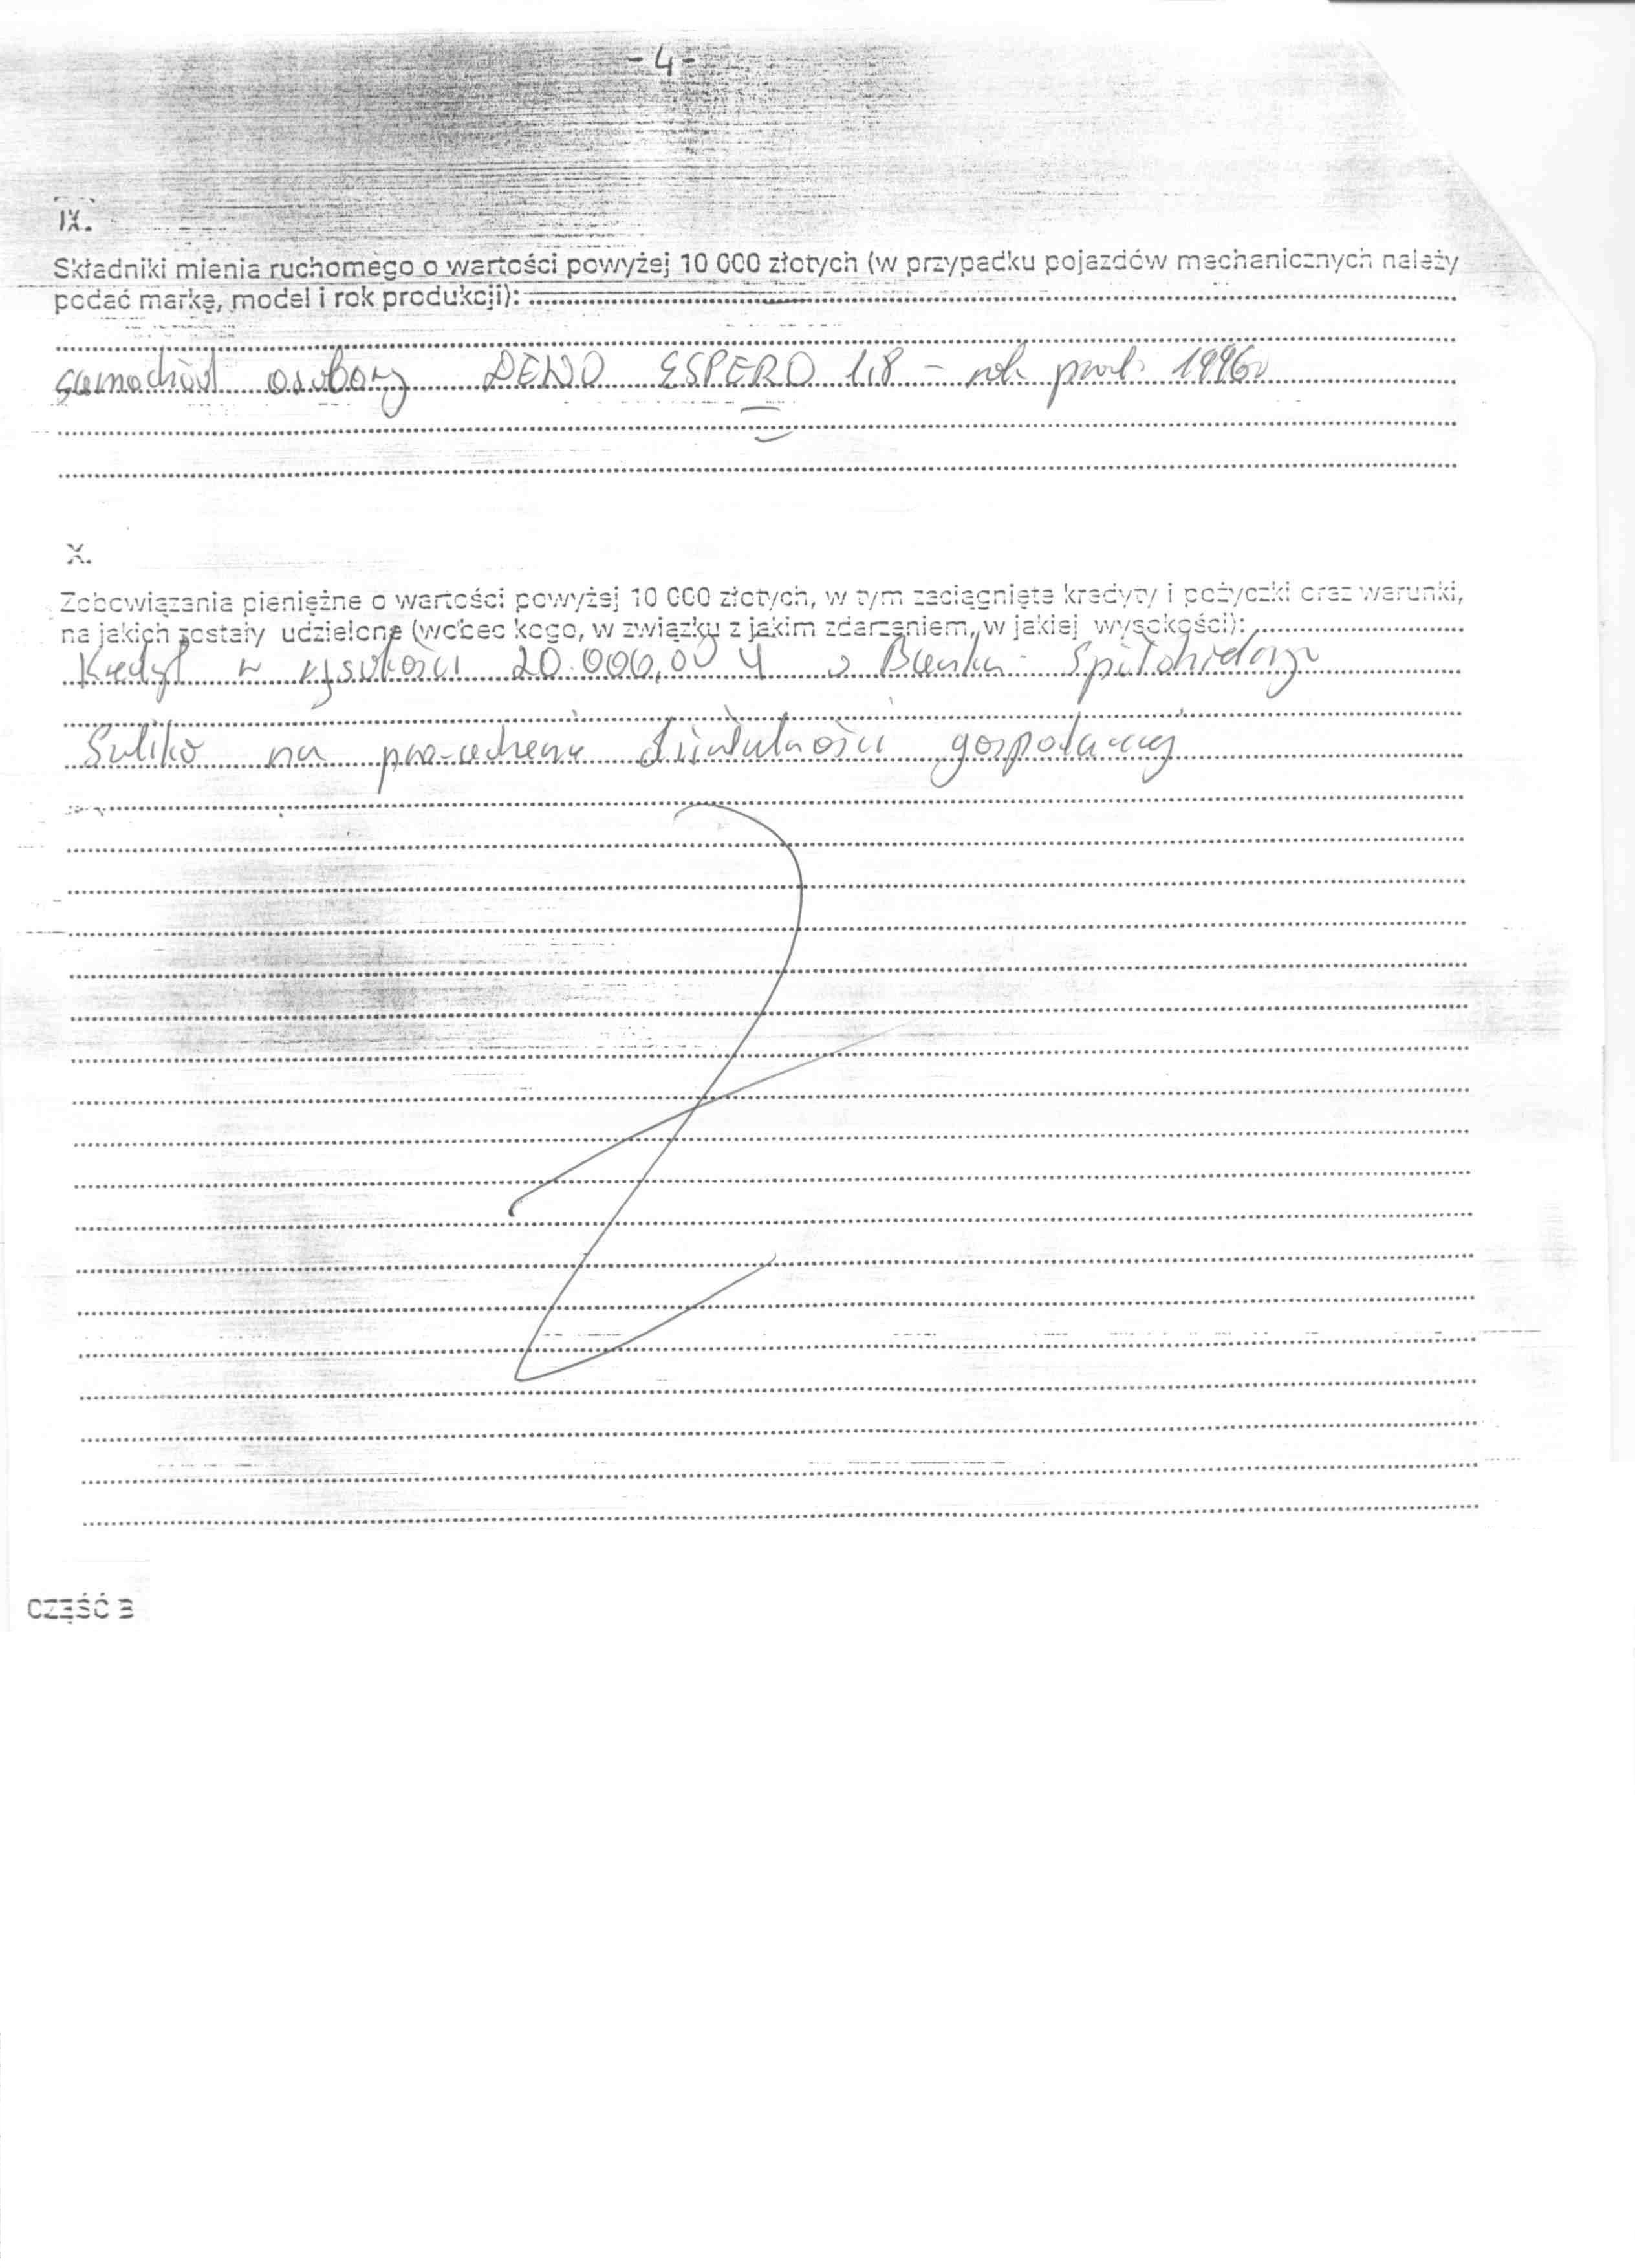 - 4 -
IX.
Składniki mienia ruchomego o wartości powyżej 10 000 złotych (w przypadku pojazdów mechanicznych należy
podać markę, model i rok produkcji):
samochód osobowy DEWO ESPERO 1,8 - rok prod. 1996r
X.
Zobowiązania pieniężne o wartości powyżej 10 000 złotych, w tym zaciągnięte kredyty i pożyczki oraz warunki,
na jakich zostały udzielone (wobec kogo, w związku z jakim zdarzeniem, w jakiej wysokości):
Kredyt w wysokości 20.000,00 zł w Banku Spółdzielczym
na prowadzenie działalności gospodarczej
CZĘŚĆ B